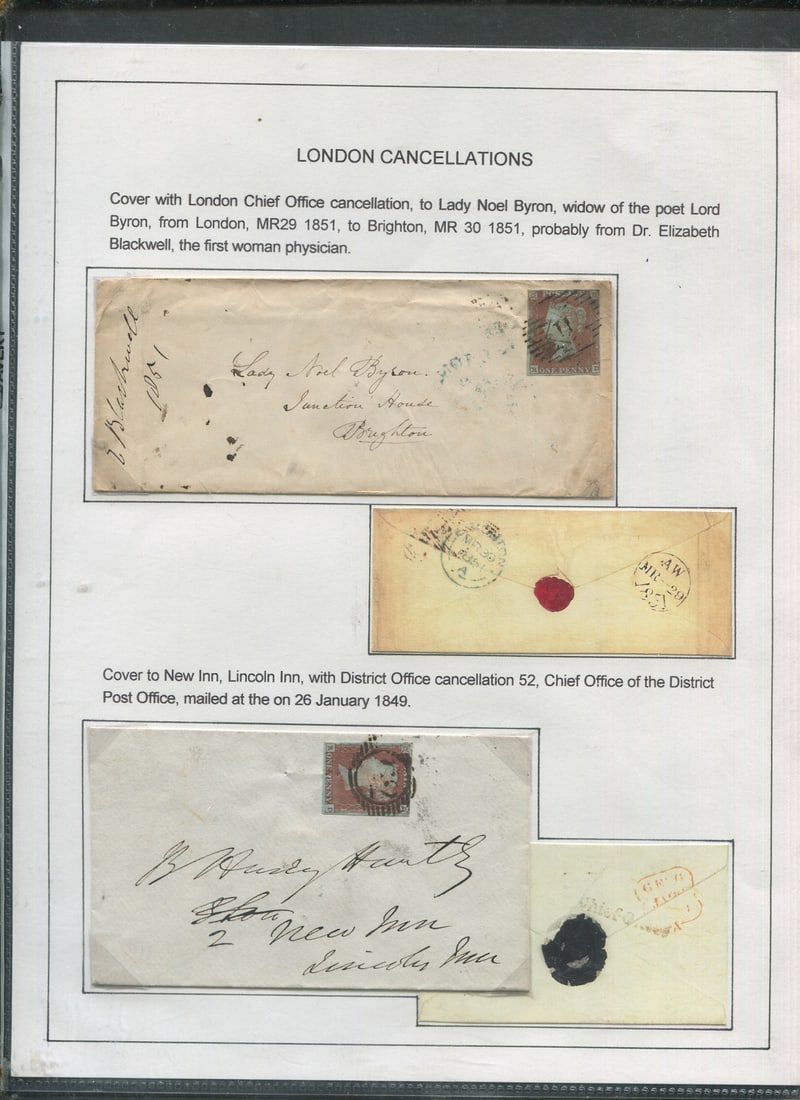 LONDON CANCELLATIONS
Cover with London Chief Office cancellation, to Lady Noel Byron, widow of the poet Lord
Byron, from London, MR29 1851, to Brighton, MR 30 1851, probably from Dr. Elizabeth
Blackwell, the first woman physician.
Blackwell
1851
ONE PENNY
Lady Noel Byron.
Junction House
Brighton
MR 30
A
AW
MR-29
1851
Cover to New Inn, Lincoln Inn, with District Office cancellation 52, Chief Office of the District
Post Office, mailed at the on 26 January 1849.
ONE PENNY
52
New Inn
2
Lincolns Inn
Chief Office